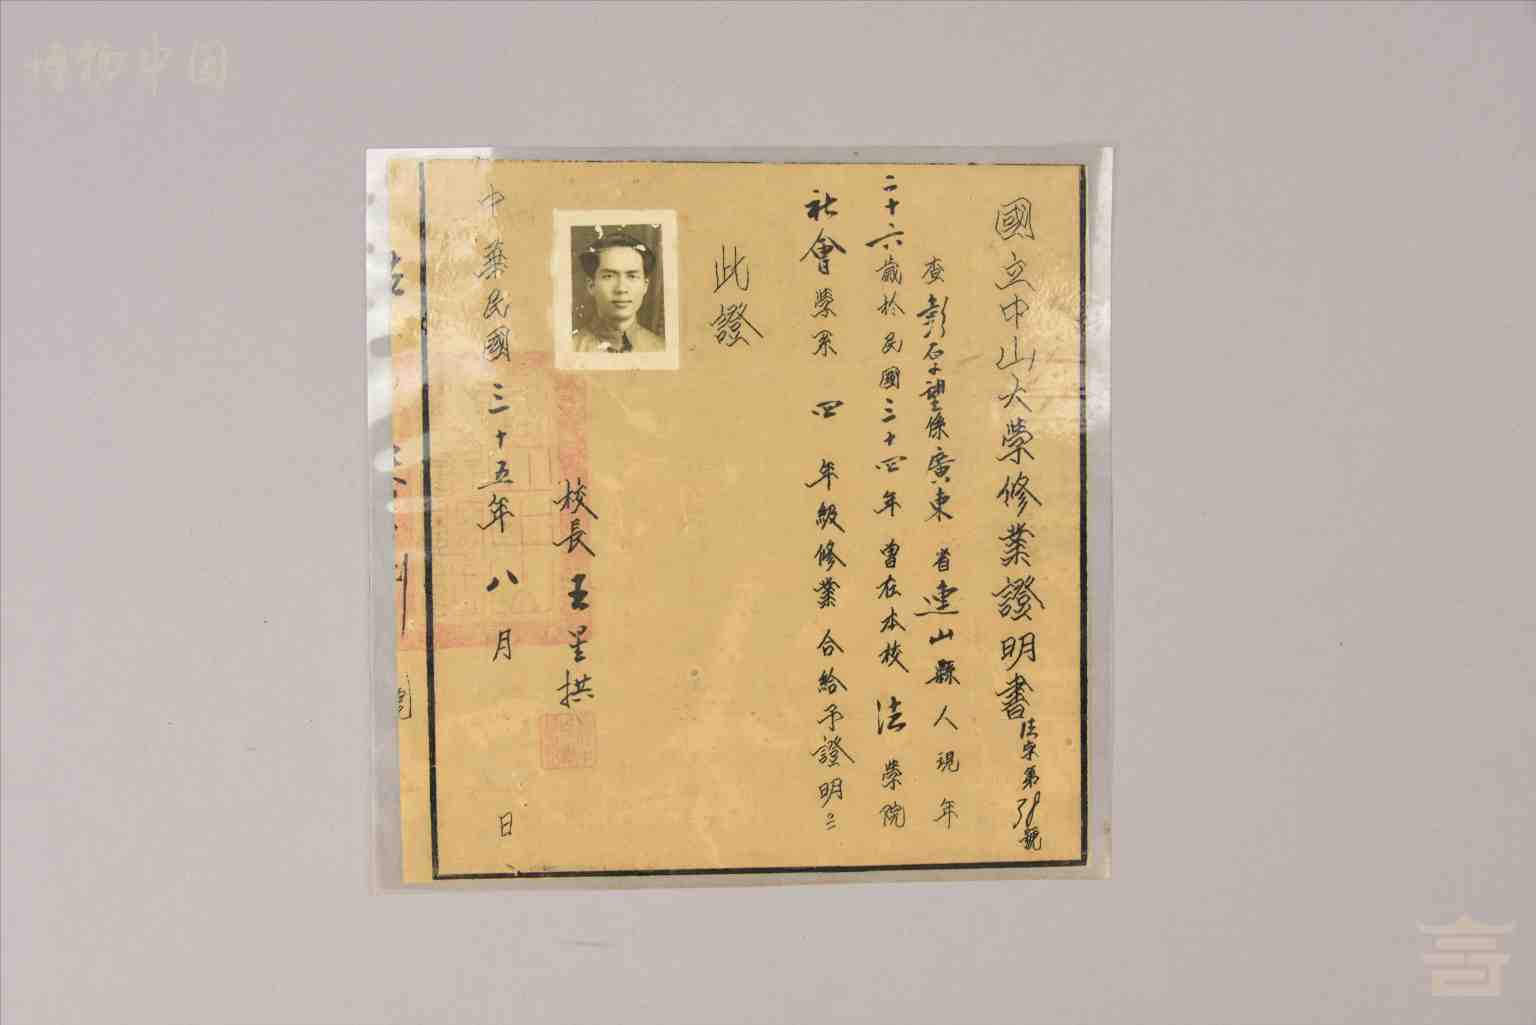 國立中山大學修業證明書
法字第38號
查彭石望係廣東省連山縣人現年
二十六歲於民國三十四年曾在本校法學院
社會學系四年級修業合給予證明
此證
校長王星拱
中華民國三十五年八月 日
博物中国